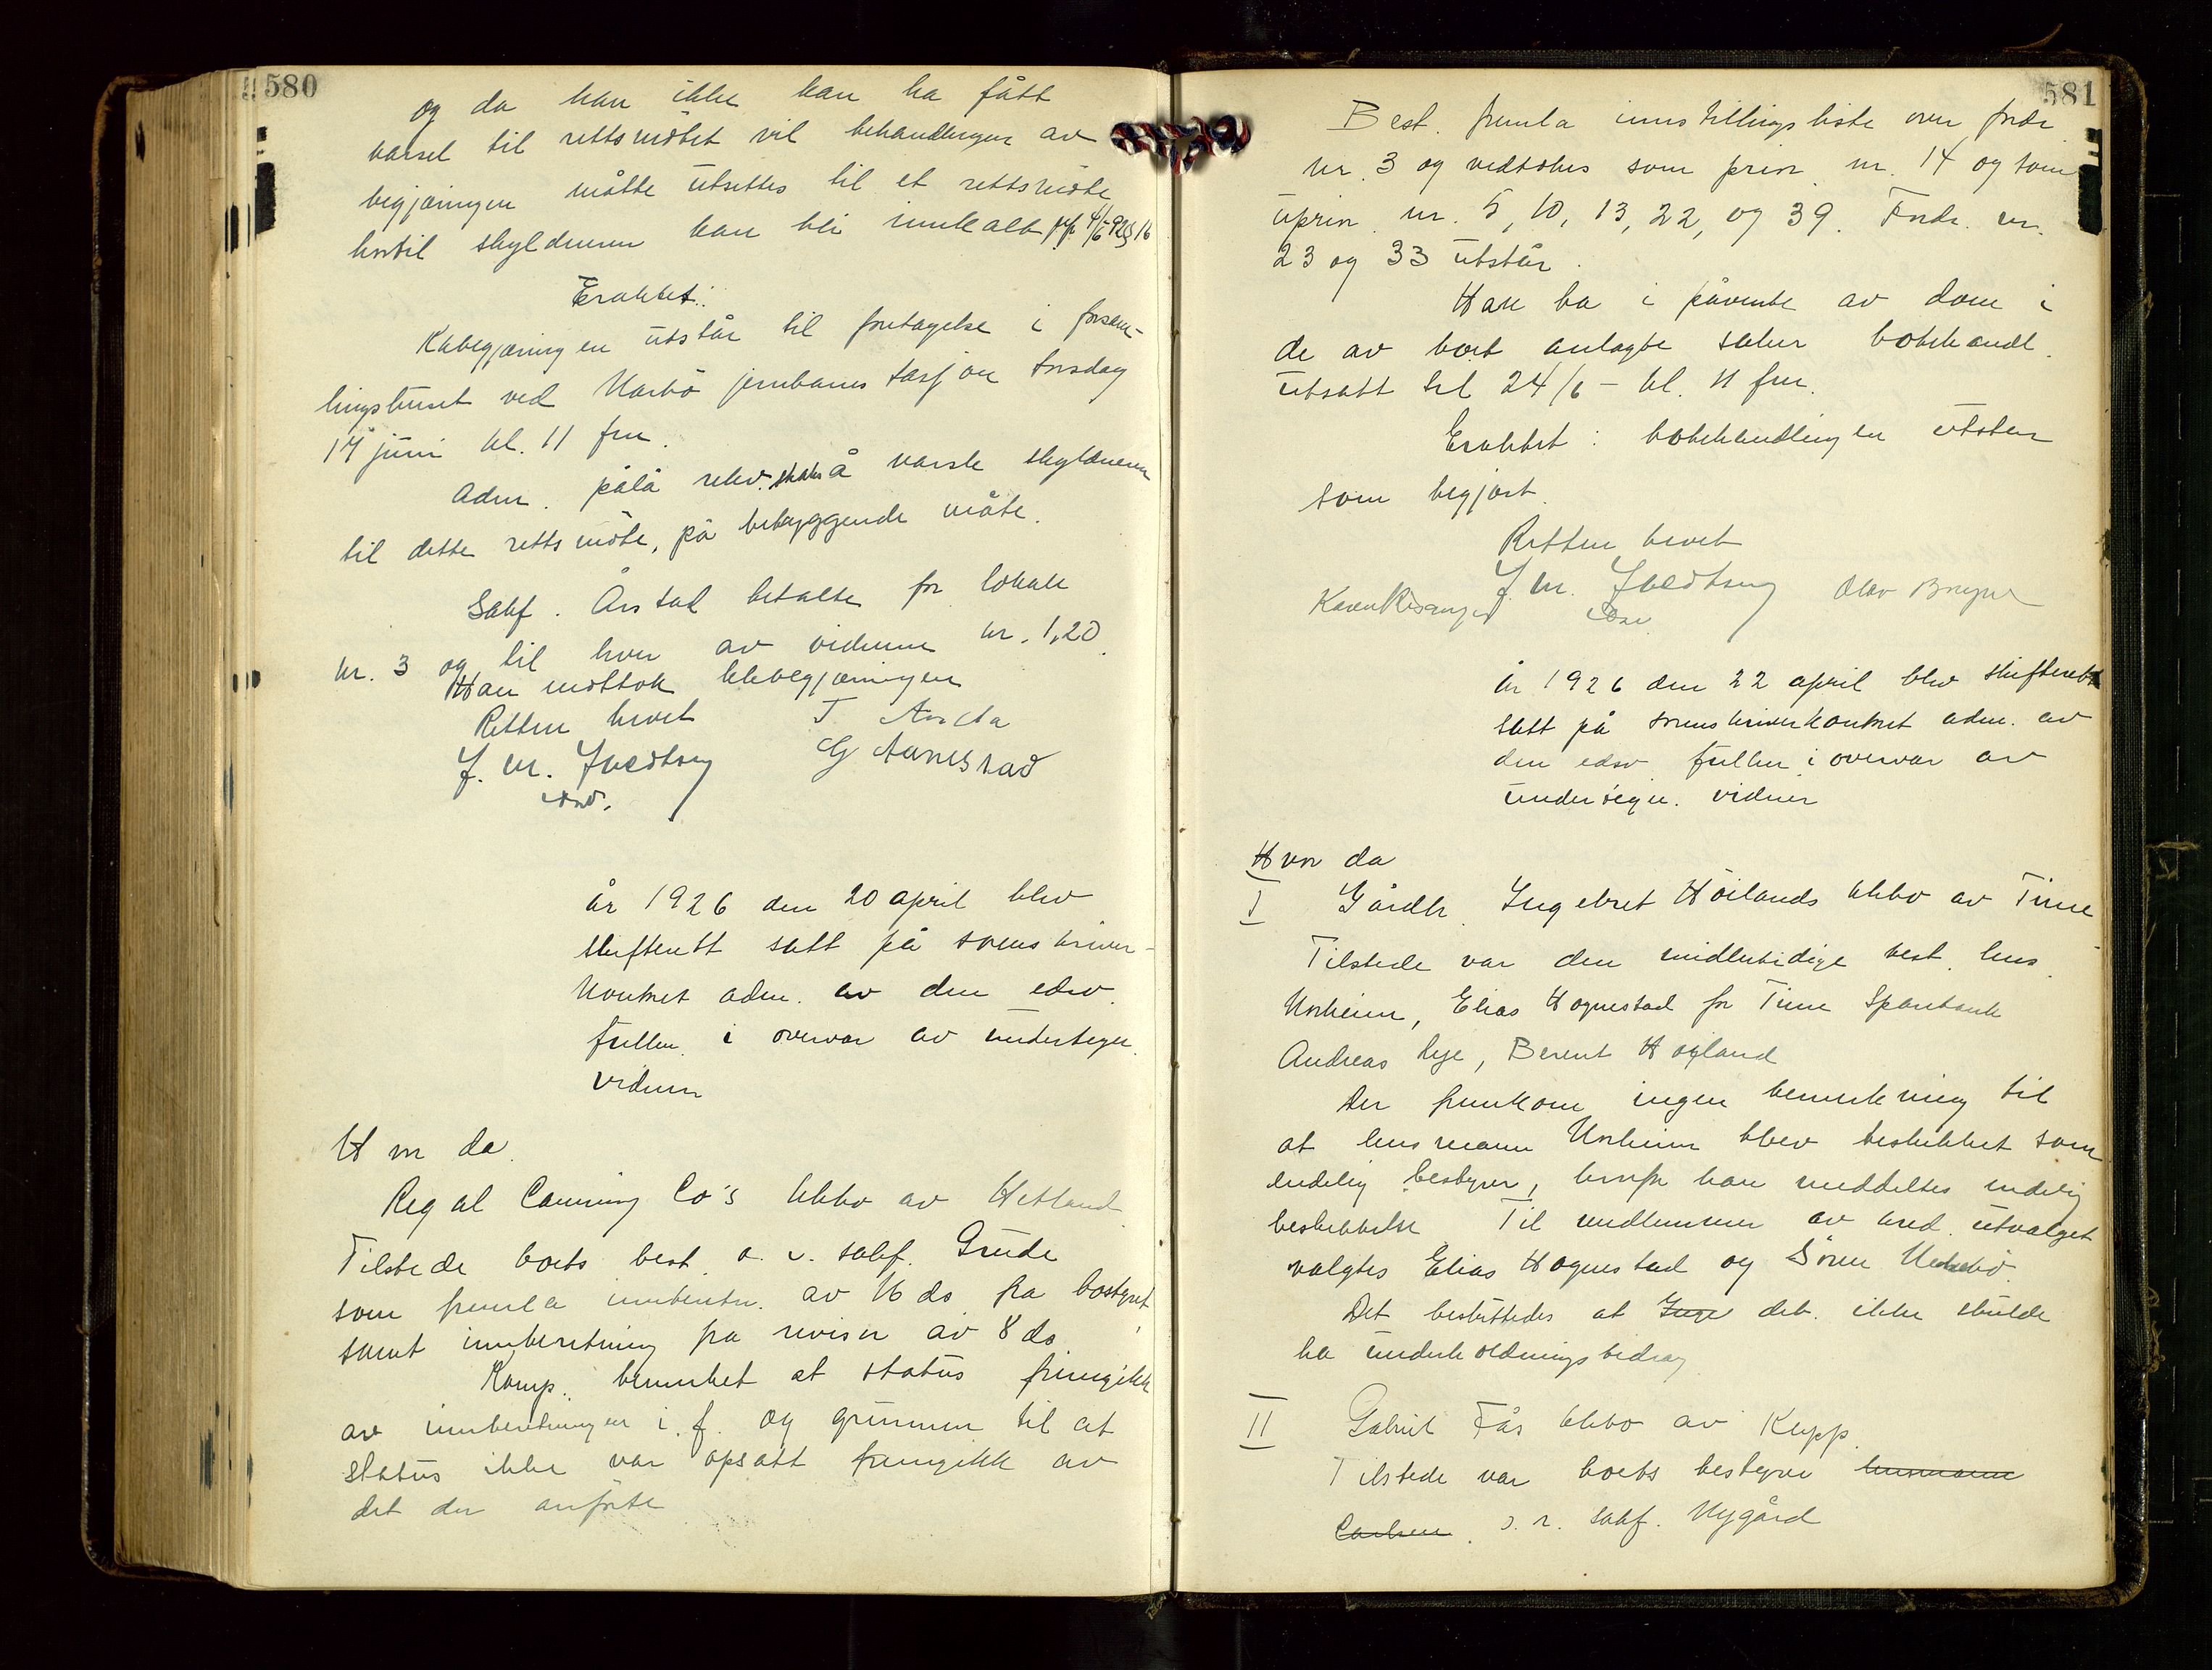 580
og da han ikke kan ha fått
varsel til rettsmötet vil behandlingen av
begjæringen måtte utsettes til et rettsmöte
hvortil skyldneren kan bli innkalt
Erakktet:
Kkbegjæringen utstår til foretagelse i forsam-
lingshuset ved jernbanestasjon torsdag
17 juni kl. 11 fm.
Adm. påla rekv. straks å varsle skyldneren
til dette rettsmöte, på betryggende måte.
Sakf. Årstad betalte for lokale
kr. 3 og til hver av vidnene kr. 1,20.
Han mottok kkbegjæringen
Retten hevet
J. M.
G Aarrestad
år 1926 den 20 april blev
skifterett satt på sorenskriver-
kontoret adm. av den edsv.
fullm. i overvær av undertegn.
vidner
Hvor da
Regal Canning Co's kkbo av Hetland
Tilstede boets best. o. r. sakf. Grude
som fremla innberetn. av 16 ds fra bostyret
samt innberetning fra revisor av 8 ds
Komp. bemerket at status fremgikk
av innberetningen i. f. og grunnen til at
status ikke var opsatt fremgikk av
det der anförte
581
Best. fremla innstillingsliste over fordr
nr. 3 og vedtokes som prior. nr. 14 og som
uprior. nr. 5, 10, 13, 22, og 39. Fordr. nr.
23 og 33 utstår.
Han ba i påvente av dom i
de av boet anlagte saker bobehandl.
utsatt til 24/6 - kl. 11 fm.
Erakktet: bobehandlingen utstår
som begjært.
Retten hevet
J. M.
år 1926 den 22 april blev skifterett
satt på sorenskriverkontoret adm. av
den edsv. fullm. i overvær av
undertegn. vidner
Hvor da
I Gårdbr. Ingebret Höilands kkbo av Time
Tilstede var den midlertidige best. lens.
Norheim, Elias Hognestad for Time Sparebank
Andreas Lye, Berent Högland
Der fremkom ingen bemerkning til
at lensmann Norheim blev beskikket som
endelig bestyrer, hvorfor han meddeltes endelig
beskikkelse Til medlemmer av kred. utvalget
valgtes Elias Hognestad og Sören
Det besluttedes at deb. ikke skulde
ha underholdningsbidrag
II Gabriel Fås kkbo av Klepp.
Tilstede var boets bestyrer lensmann
Carlsen. o. r. sakf. Nygård